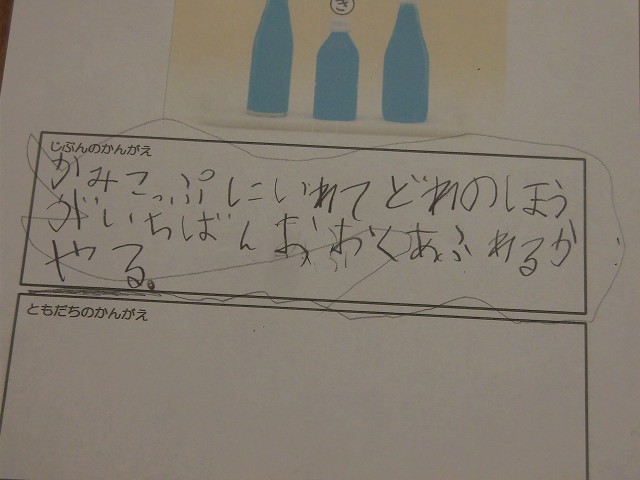 き
じぶんのかんがえ
かみこっぷにいれてどれのほう
がいちばんおおくあふれるか
やる。
ともだちのかんがえ